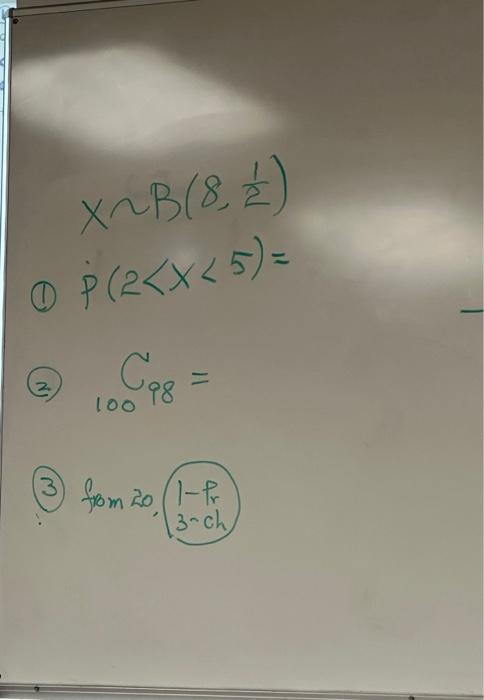 X~B(8, 1/2)
① P(2<X<5)=
② ₁₀₀C₉₈ =
③ from 20, 1-Pr
3-ch